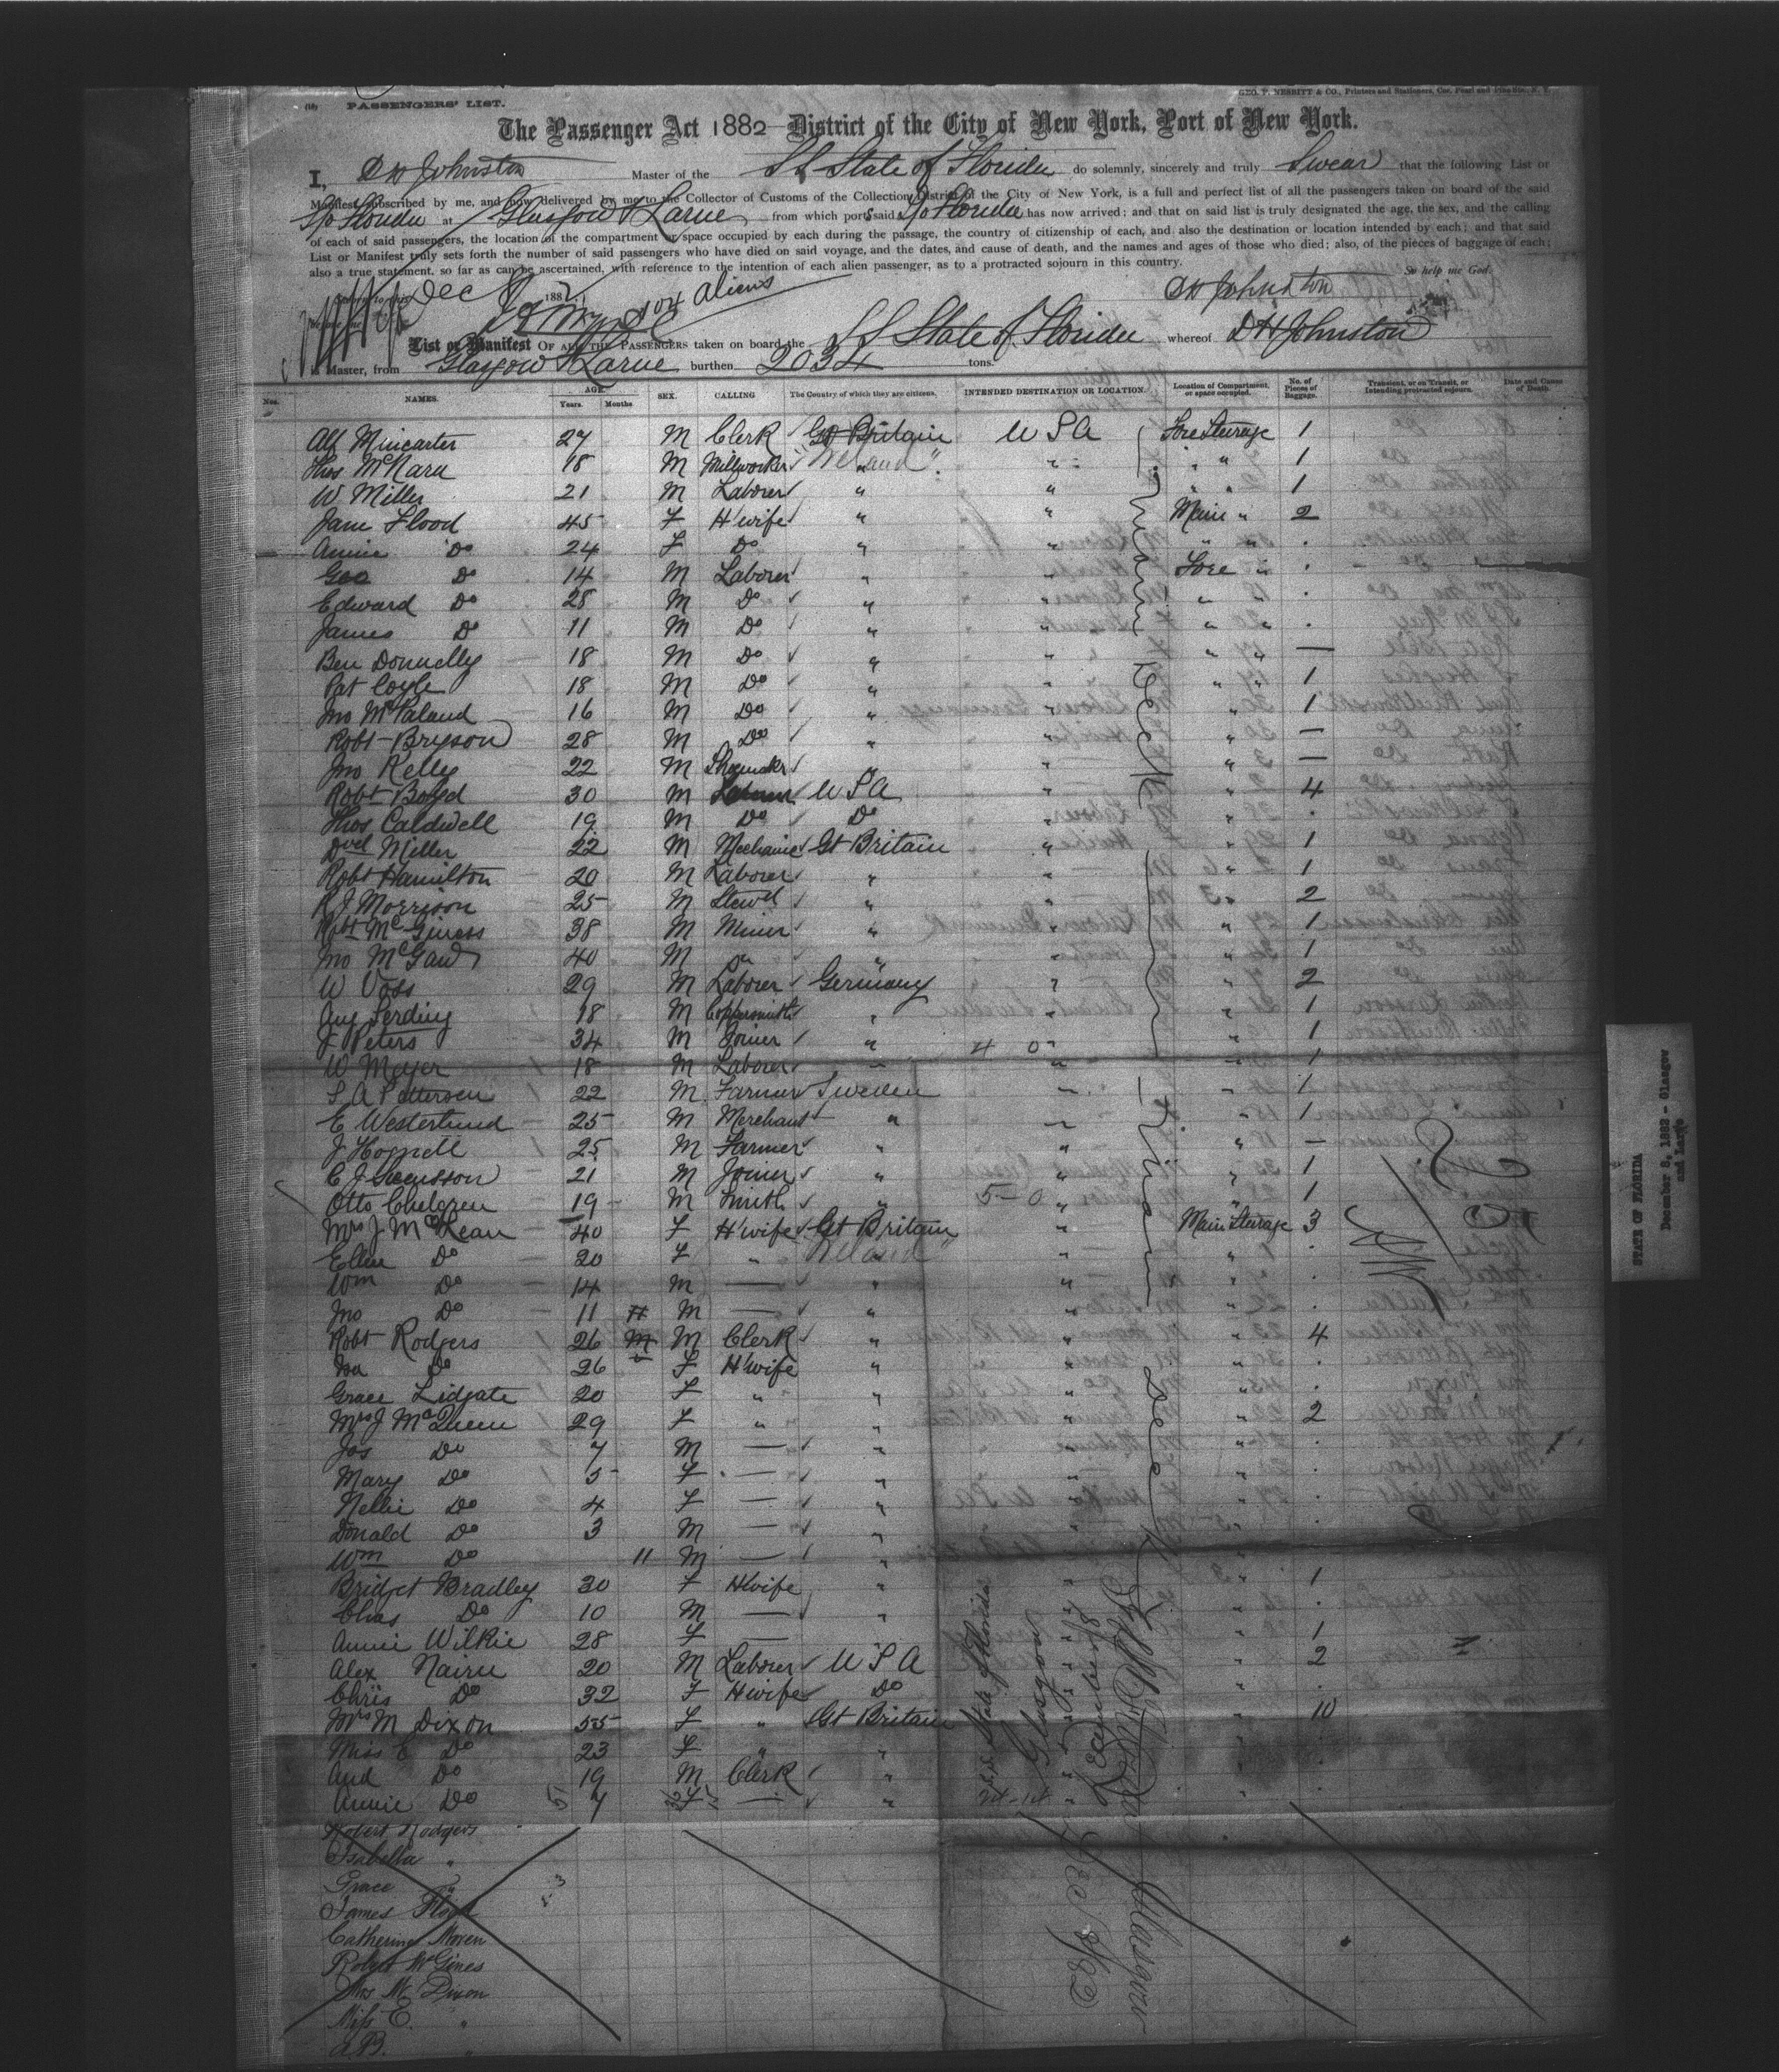 (18) PASSENGERS' LIST.
GEO. F. NESBITT & CO., Printers and Stationers, Cor. Pearl and Pine Sts., N. Y.
The Passenger Act 1882 District of the City of New York, Port of New York.
I, D H Johnston Master of the S S State of Florida do solemnly, sincerely and truly Swear that the following List or
Manifest, subscribed by me, and now delivered by me to the Collector of Customs of the Collection District of the City of New York, is a full and perfect list of all the passengers taken on board of the said
S/S Florida at Glasgow & Larne from which ports said S/S Florida has now arrived; and that on said list is truly designated the age, the sex, and the calling
of each of said passengers, the location of the compartment or space occupied by each during the passage, the country of citizenship of each, and also the destination or location intended by each; and that said
List or Manifest truly sets forth the number of said passengers who have died on said voyage, and the dates, and cause of death, and the names and ages of those who died; also, of the pieces of baggage of each;
also a true statement, so far as can be ascertained, with reference to the intention of each alien passenger, as to a protracted sojourn in this country.
So help me God.
Dec 8 1882 104 aliens D H Johnston
List or Manifest OF ALL THE PASSENGERS taken on board the S S State of Florida whereof D H Johnston
is Master, from Glasgow & Larne burthen 2034 tons.
Nos. NAMES. AGE. Years. Months SEX. CALLING The Country of which they are citizens. INTENDED DESTINATION OR LOCATION. Location of Compartment, or space occupied. No. of Pieces of Baggage. Transient, or in Transit, or Intending protracted sojourn. Date and Cause of Death.
Alf Mincarter 27 M Clerk Gt Britain U S A Fore Sturage 1
Thos McNara 18 M Millworker Ireland " " " 1
W Miller 21 M Laborer " " " " 1
Jane Flood 45 F H'wife " " Main " 2
Annie Do 24 F Do " " " "
Geo Do 14 M Laborer " " Fore "
Edward Do 28 M Do " " " "
James Do 11 M Do " " " "
Ben Donnelly 18 M Do " " " " —
Pat Coyle 18 M Do " " " " 1
Jno McPaland 16 M Do " " " 1
Robt Bryson 28 M Do " " " —
Jno Kelly 22 M Shoemakr " " " —
Robt Boyd 30 M Laborer U S A " " 4
Thos Caldwell 19 M Do Do " "
Dvd Miller 22 M Mechanic Gt Britain " " 1
Robt Hamilton 20 M Laborer " " " 1
R J Morrison 25 M Stewd " " " 2
Robt McGiness 38 M Miner " " " 1
Jno McGaw 40 M Do " " " 1
W Voss 29 M Laborer Germany " " 2
Aug Serding 18 M Coppersmith " " " 1
J Peters 34 M Joiner " 4 0 " " 1
W Meyer 18 M Laborer " " " 1
S A Pettersen 22 M Farmer Sweden " " 1
E Westerlund 25 M Merchant " " " 1
J Hoppell 25 M Farmer " " " —
C J Svensson 21 M Joiner " " " 1
Otto Chelgren 19 M Smith " 5 0 " " 1
Mrs J McKean 40 F H'wife Gt Britain " Main Sturage 3
Ellen Do 20 F " Ireland " " "
Wm Do 14 M — " " "
Jno Do 11 M — " " "
Robt Rodgers 26 M Clerk " " " 4
Isa Do 26 F H'wife " " "
Grace Lidgate 20 F " " " "
Mrs J McQueen 29 F " " " " 2
Jas Do 7 M — " " "
Mary Do 5 F — " " "
Nellie Do 4 F — " " "
Donald Do 3 M — " " "
Wm Do 11 M — " " "
Bridget Bradley 30 F H'wife " " " 1
Chas Do 10 M — " " "
Annie Wilkie 28 F — " " 1
Alex Nairn 20 M Laborer U S A " " 2
Chris Do 32 F H'wife Do " "
Mrs M Dixon 55 F " Gt Britain " " 10
Miss E Do 23 F " " " "
And Do 19 M Clerk " " "
Annie Do 7 F — " " "
Robert Rodgers
Isabella "
Grace "
James Flood
Catherine Moren
Robert McGines
Mrs M. Dixon
Miss E. "
A.B. "
S.S. State of Florida
Glasgow
Dec 8/82
Glasgow
STATE OF FLORIDA
December 8, 1882 - Glasgow
and Largo